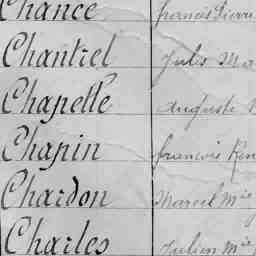 Chance francis Pierre
Chantrel Jules Ma
Chapelle Auguste
Chapin francois Ren
Chardon Marcel Mie
Charles Julien Mie